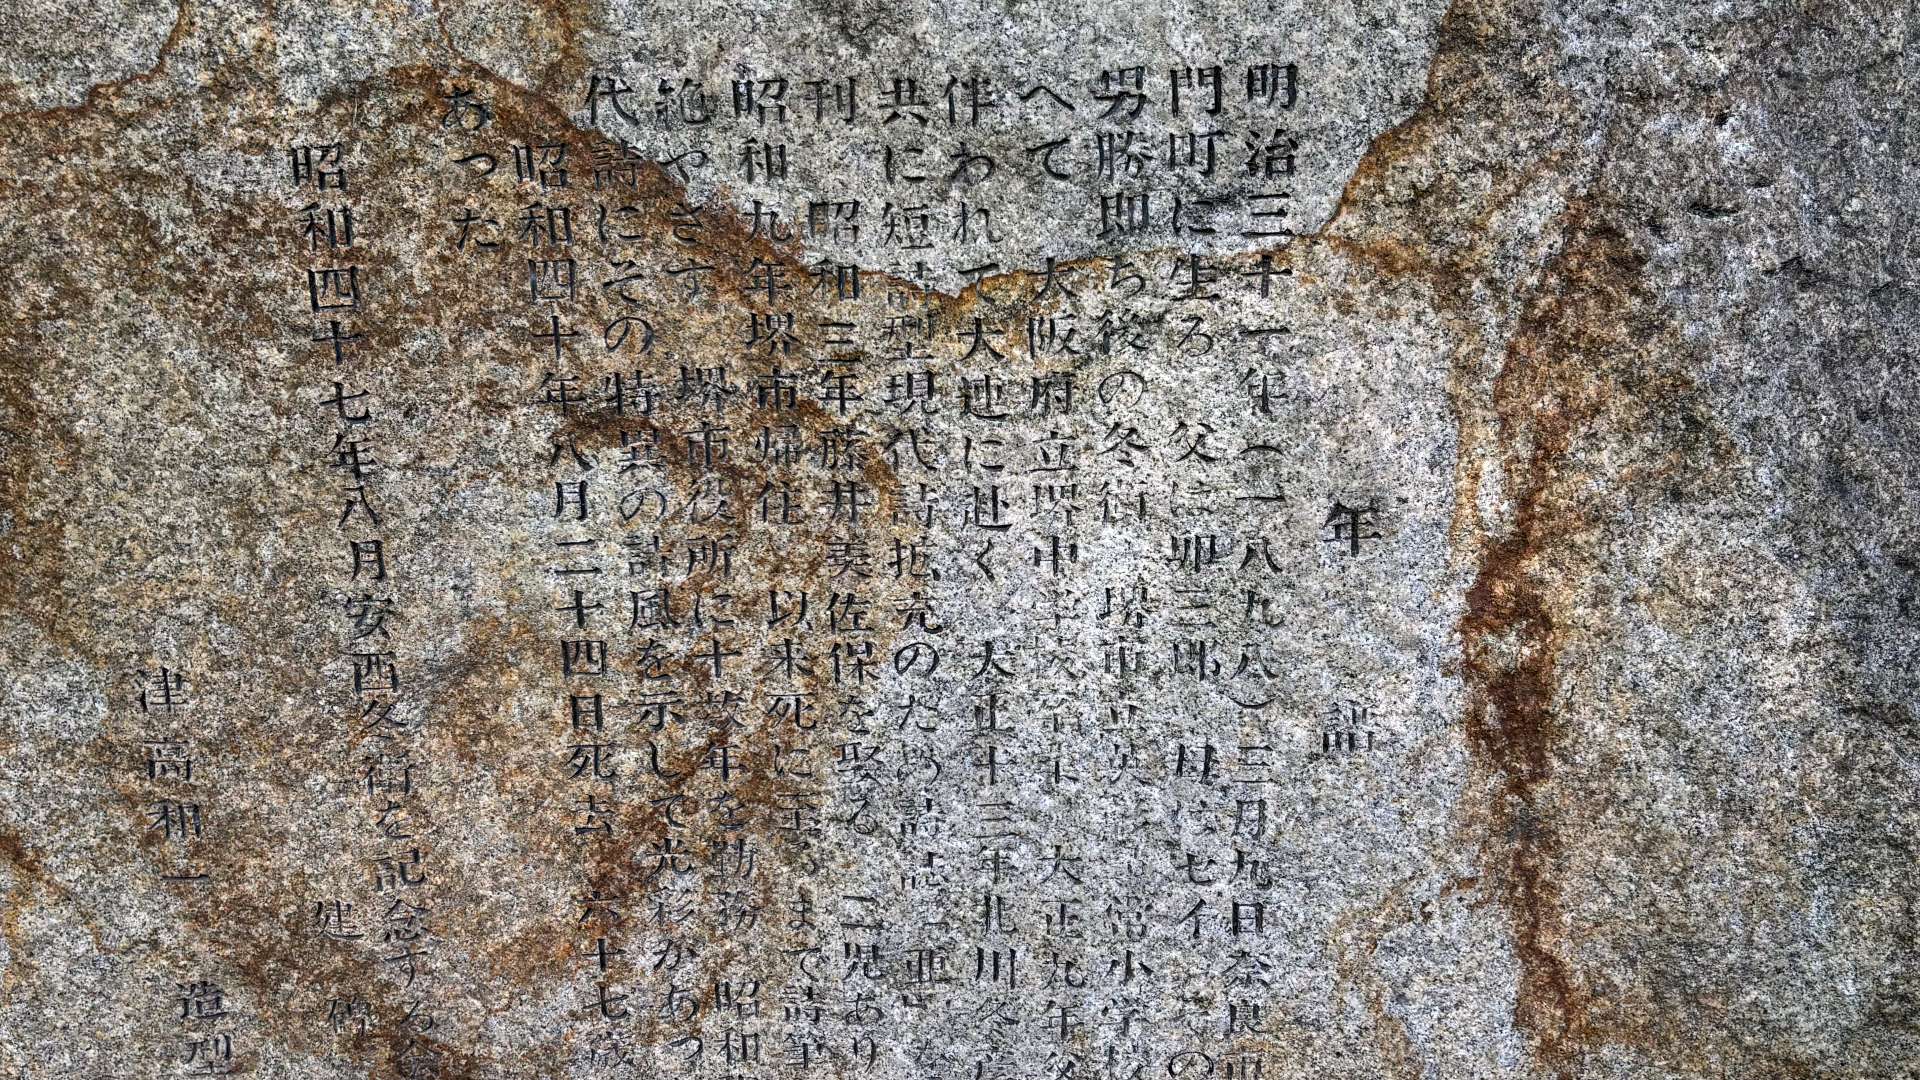 年 譜
明治三十一年(一八九八)三月九日奈良市
門町に生る 父は卯三郎 母はセイ の
男勝即ち後の冬衛 堺市立英 常小学校
へて 大阪府立堺中学校 大正九年父
伴われて大連に赴く 大正十三年北川冬彦
共に短詩型現代詩拓充のため詩誌「亜」
刊 昭和三年藤井美佐保を娶る 二児あり
昭和九年堺市帰住 以来死に至るまで詩筆
絶やさず 堺市役所に十数年を勤務 昭和
代詩にその特異の詩風を示して光彩があっ
昭和四十年八月二十四日死去 六十七歳
あった
昭和四十七年八月安西冬衛を記念する会
建 碑
津高和一 造型